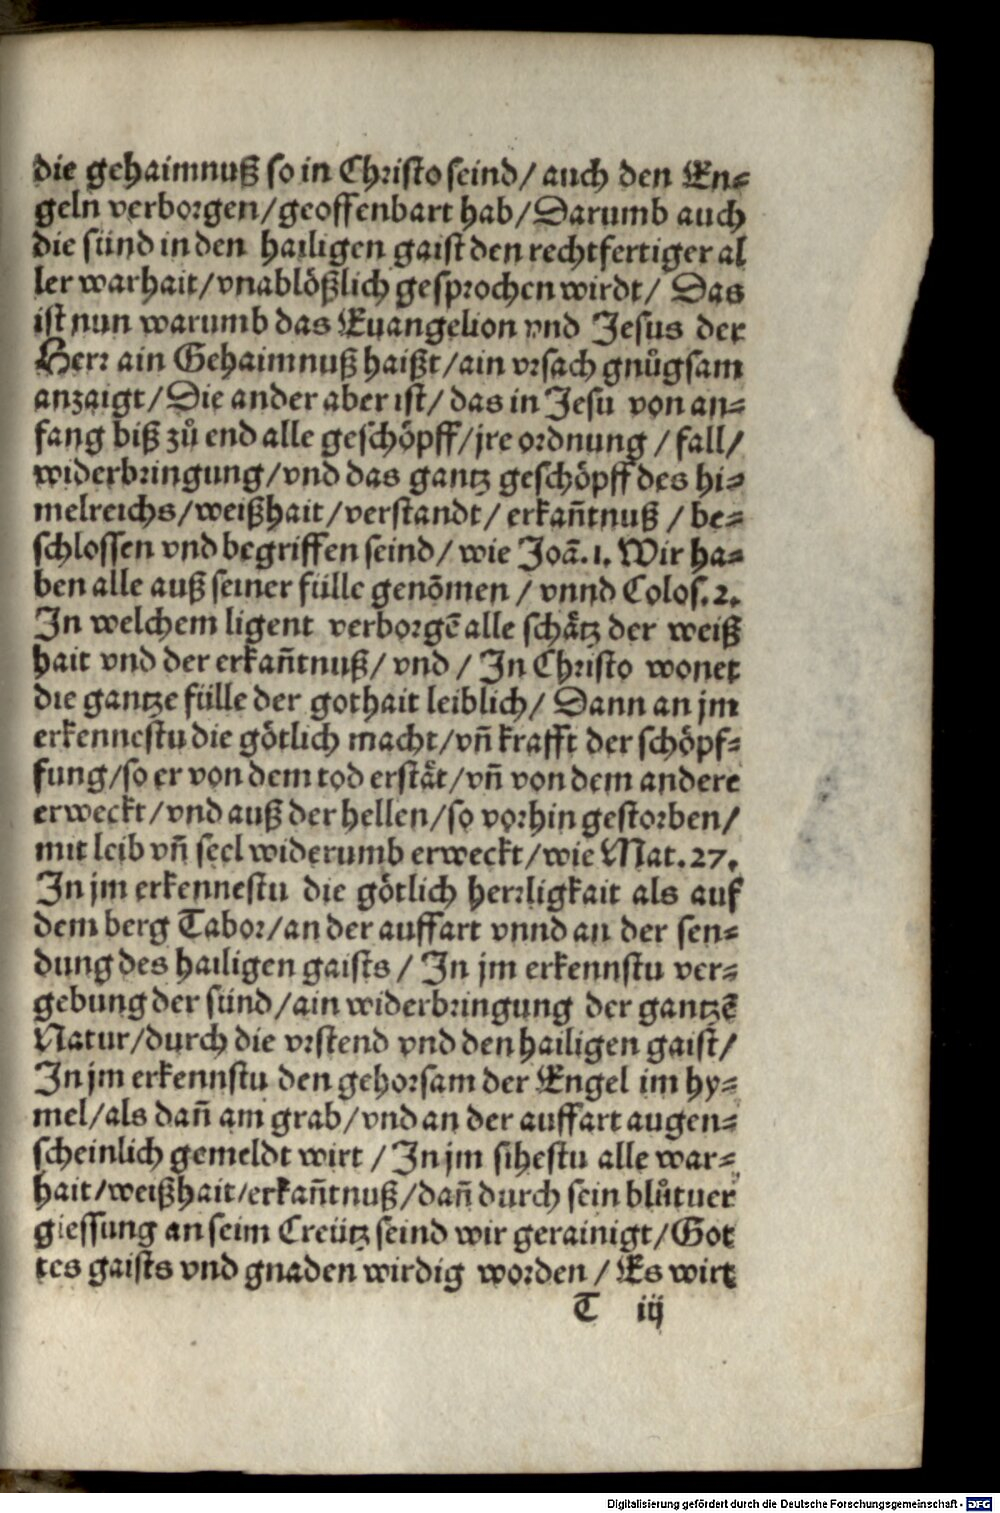 die gehaimnuß so in Christo seind/ auch den En⸗
geln verborgen/geoffenbart hab/Darumb auch
die sünd in den hailigen gaist den rechtfertiger al
ler warhait/vnablößlich gesprochen wirdt/ Das
ist nun warumb das Euangelion vnd Jesus der
Herr ain Gehaimnuß haißt/ain vrsach gnůgsam
anzaigt/Die ander aber ist/ das in Jesu von an⸗
fang biß zů end alle geschöpff/jre ordnung / fall/
widerbringung/vnd das gantz geschöpff des hi⸗
melreichs/weißhait/verstandt/ erkan̄tnuß / be⸗
schlossen vnd begriffen seind/ wie Joā.1. Wir ha⸗
ben alle auß seiner fülle genōmen / vnnd Colos.2.
In welchem ligent verborgē alle schätz der weiß
hait vnd der erkan̄tnuß/ vnd / In Christo wonet
die gantze fülle der gothait leiblich/ Dann an jm
erkennestu die götlich macht/vn̄ krafft der schöpf⸗
fung/so er von dem tod erstät/vn̄ von dem andere
erweckt/vnd auß der hellen/so vorhin gestorben/
mit leib vn̄ seel widerumb erweckt/wie Mat.27.
In jm erkennestu die götlich herrligkait als auf
dem berg Tabor/an der auffart vnnd an der sen⸗
dung des hailigen gaists / In jm erkennstu ver⸗
gebung der sünd/ain widerbringung der gantzē
Natur/durch die vrstend vnd den hailigen gaist/
In jm erkennstu den gehorsam der Engel im hy⸗
mel/als dan̄ am grab/vnd an der auffart augen⸗
scheinlich gemeldt wirt / In jm sihestu alle war⸗
hait/weißhait/erkan̄tnuß/dan̄ durch sein blůtuer
giessung an seim Creütz seind wir gerainigt/Got
tes gaists vnd gnaden wirdig worden / Es wirt
T iij
Digitalisierung gefördert durch die Deutsche Forschungsgemeinschaft - DFG